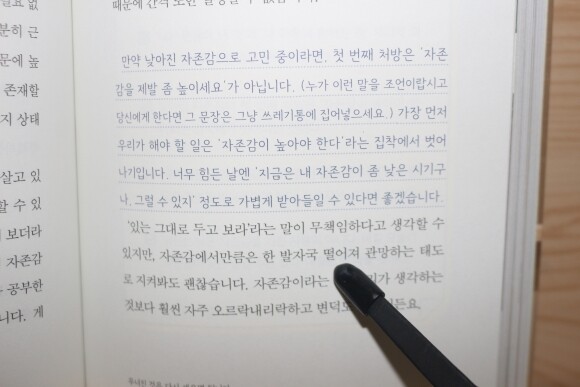 만약 낮아진 자존감으로 고민 중이라면, 첫 번째 처방은 '자존
감을 제발 좀 높이세요'가 아닙니다. (누가 이런 말을 조언이랍시고
당신에게 한다면 그 문장은 그냥 쓰레기통에 집어넣으세요.) 가장 먼저
우리가 해야 할 일은 '자존감이 높아야 한다'라는 집착에서 벗어
나기입니다. 너무 힘든 날엔 '지금은 내 자존감이 좀 낮은 시기구
나. 그럴 수 있지' 정도로 가볍게 받아들일 수 있다면 좋겠습니다.
'있는 그대로 두고 보라'라는 말이 무책임하다고 생각할 수
있지만, 자존감에서만큼은 한 발자국 떨어져 관망하는 태도
로 지켜봐도 괜찮습니다. 자존감이라는 생각하는
것보다 훨씬 자주 오르락내리락하고
분히 근
문에 높
존재할
지 상태
살고 있
할 수 있
보더라
자존감
공부한
니다. 게